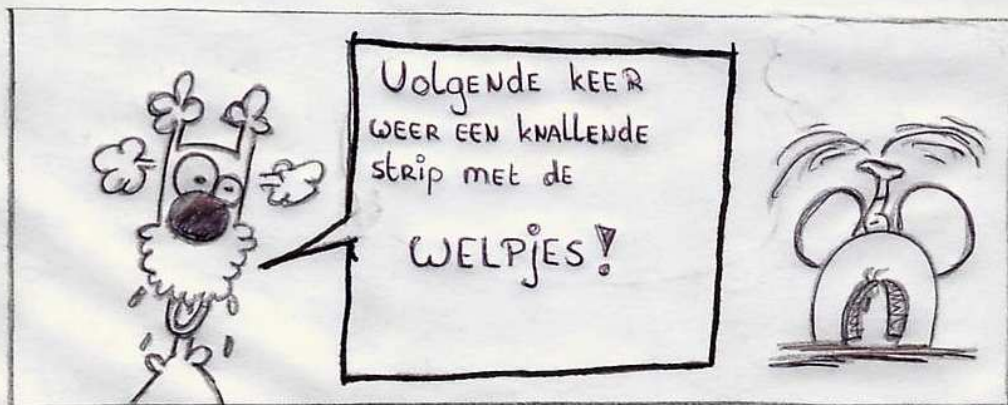 Volgende keer
weer een knallende
strip met de
welpjes!